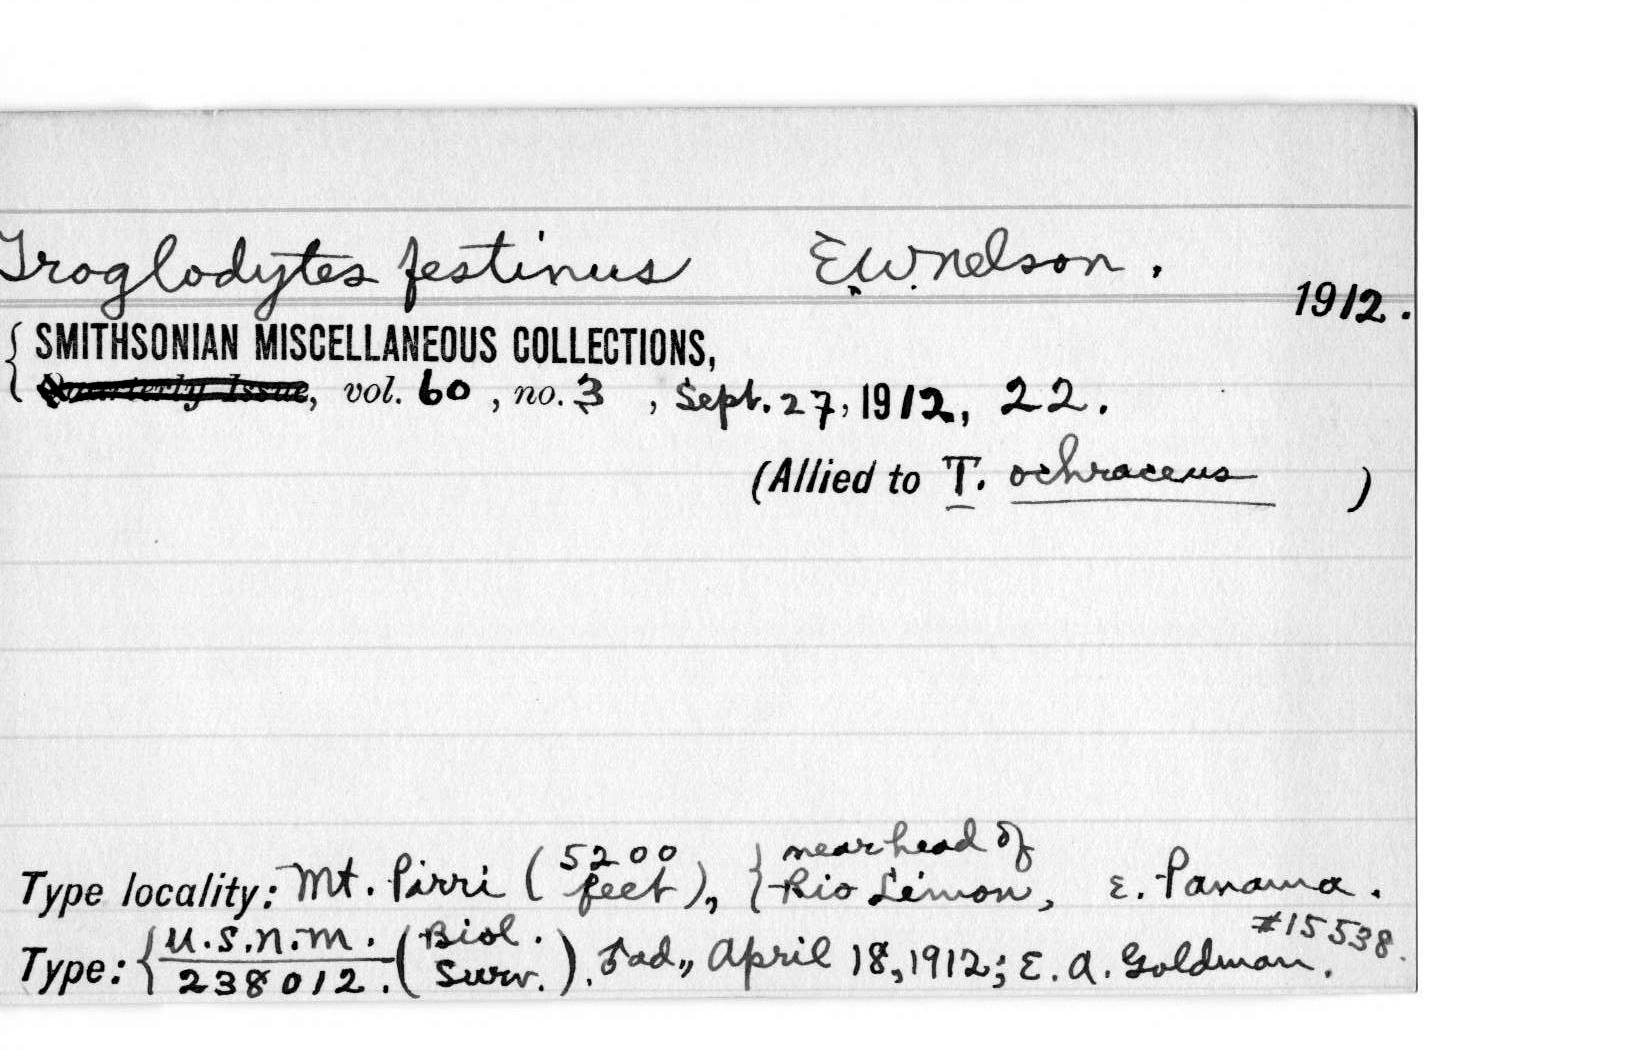 Troglodytes festinus E.W. Nelson. 1912.
SMITHSONIAN MISCELLANEOUS COLLECTIONS,
Quarterly Issue, vol. 60, no. 3, Sept. 27, 1912, 22.
(Allied to T. ochraceus )
Type locality: Mt. Pirri (5200 feet)., {near head of Rio Limon, E. Panama.
#15538.
Type: {U.S.N.M. 238012. (Biol. Surv.). ad., April 18, 1912; E. A. Goldman.